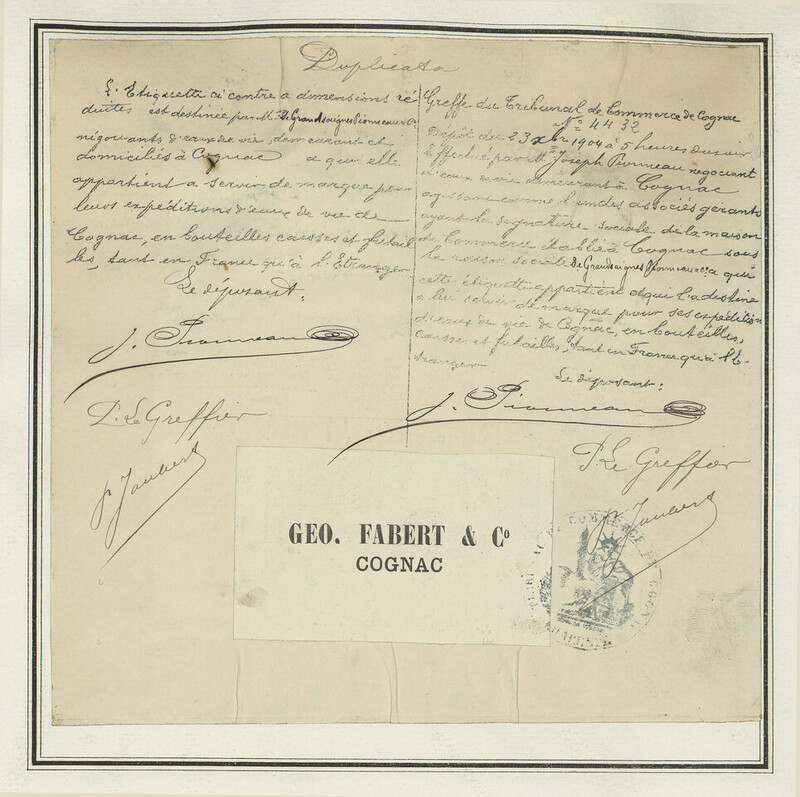 Duplicata
L'Etiquette ci contre a dimensions ré
duites est destinée par M.M. De Grandsaignes Pionneau & Cie
négociants d'eaux de vie, demeurant et
domiciliés à Cognac a qui elle
appartient a servir de marque pour
leurs expéditions d'eaux de vie de
Cognac, en bouteilles caisses et futail
les, tant en France qu'à l'Etranger
Le déposant:
J. Pionneau
P. Le Greffier
P. Joubert
Greffe du Tribunal de Commerce de Cognac
No 4432
Dépôt du 23 Xbre 1904 à 5 heures du soir
Effectué par M. Joseph Pionneau négociant
d'eaux de vie demeurant à Cognac
agissant comme l'un des associés gérants
ayant la signature sociale de la maison
de Commerce établie à Cognac sous
la raison sociale De Grandsaignes Pionneau & Cie a qui
cette étiquette appartient et qui la destine
a lui servir de marque pour ses expéditions
d'eaux de vie de Cognac, en bouteilles,
caisses et futailles, tant en France qu'à l'E
tranger
Le déposant:
J. Pionneau
P. Le Greffier
GEO. FABERT & Co
COGNAC
COMMERCE DE COGNAC